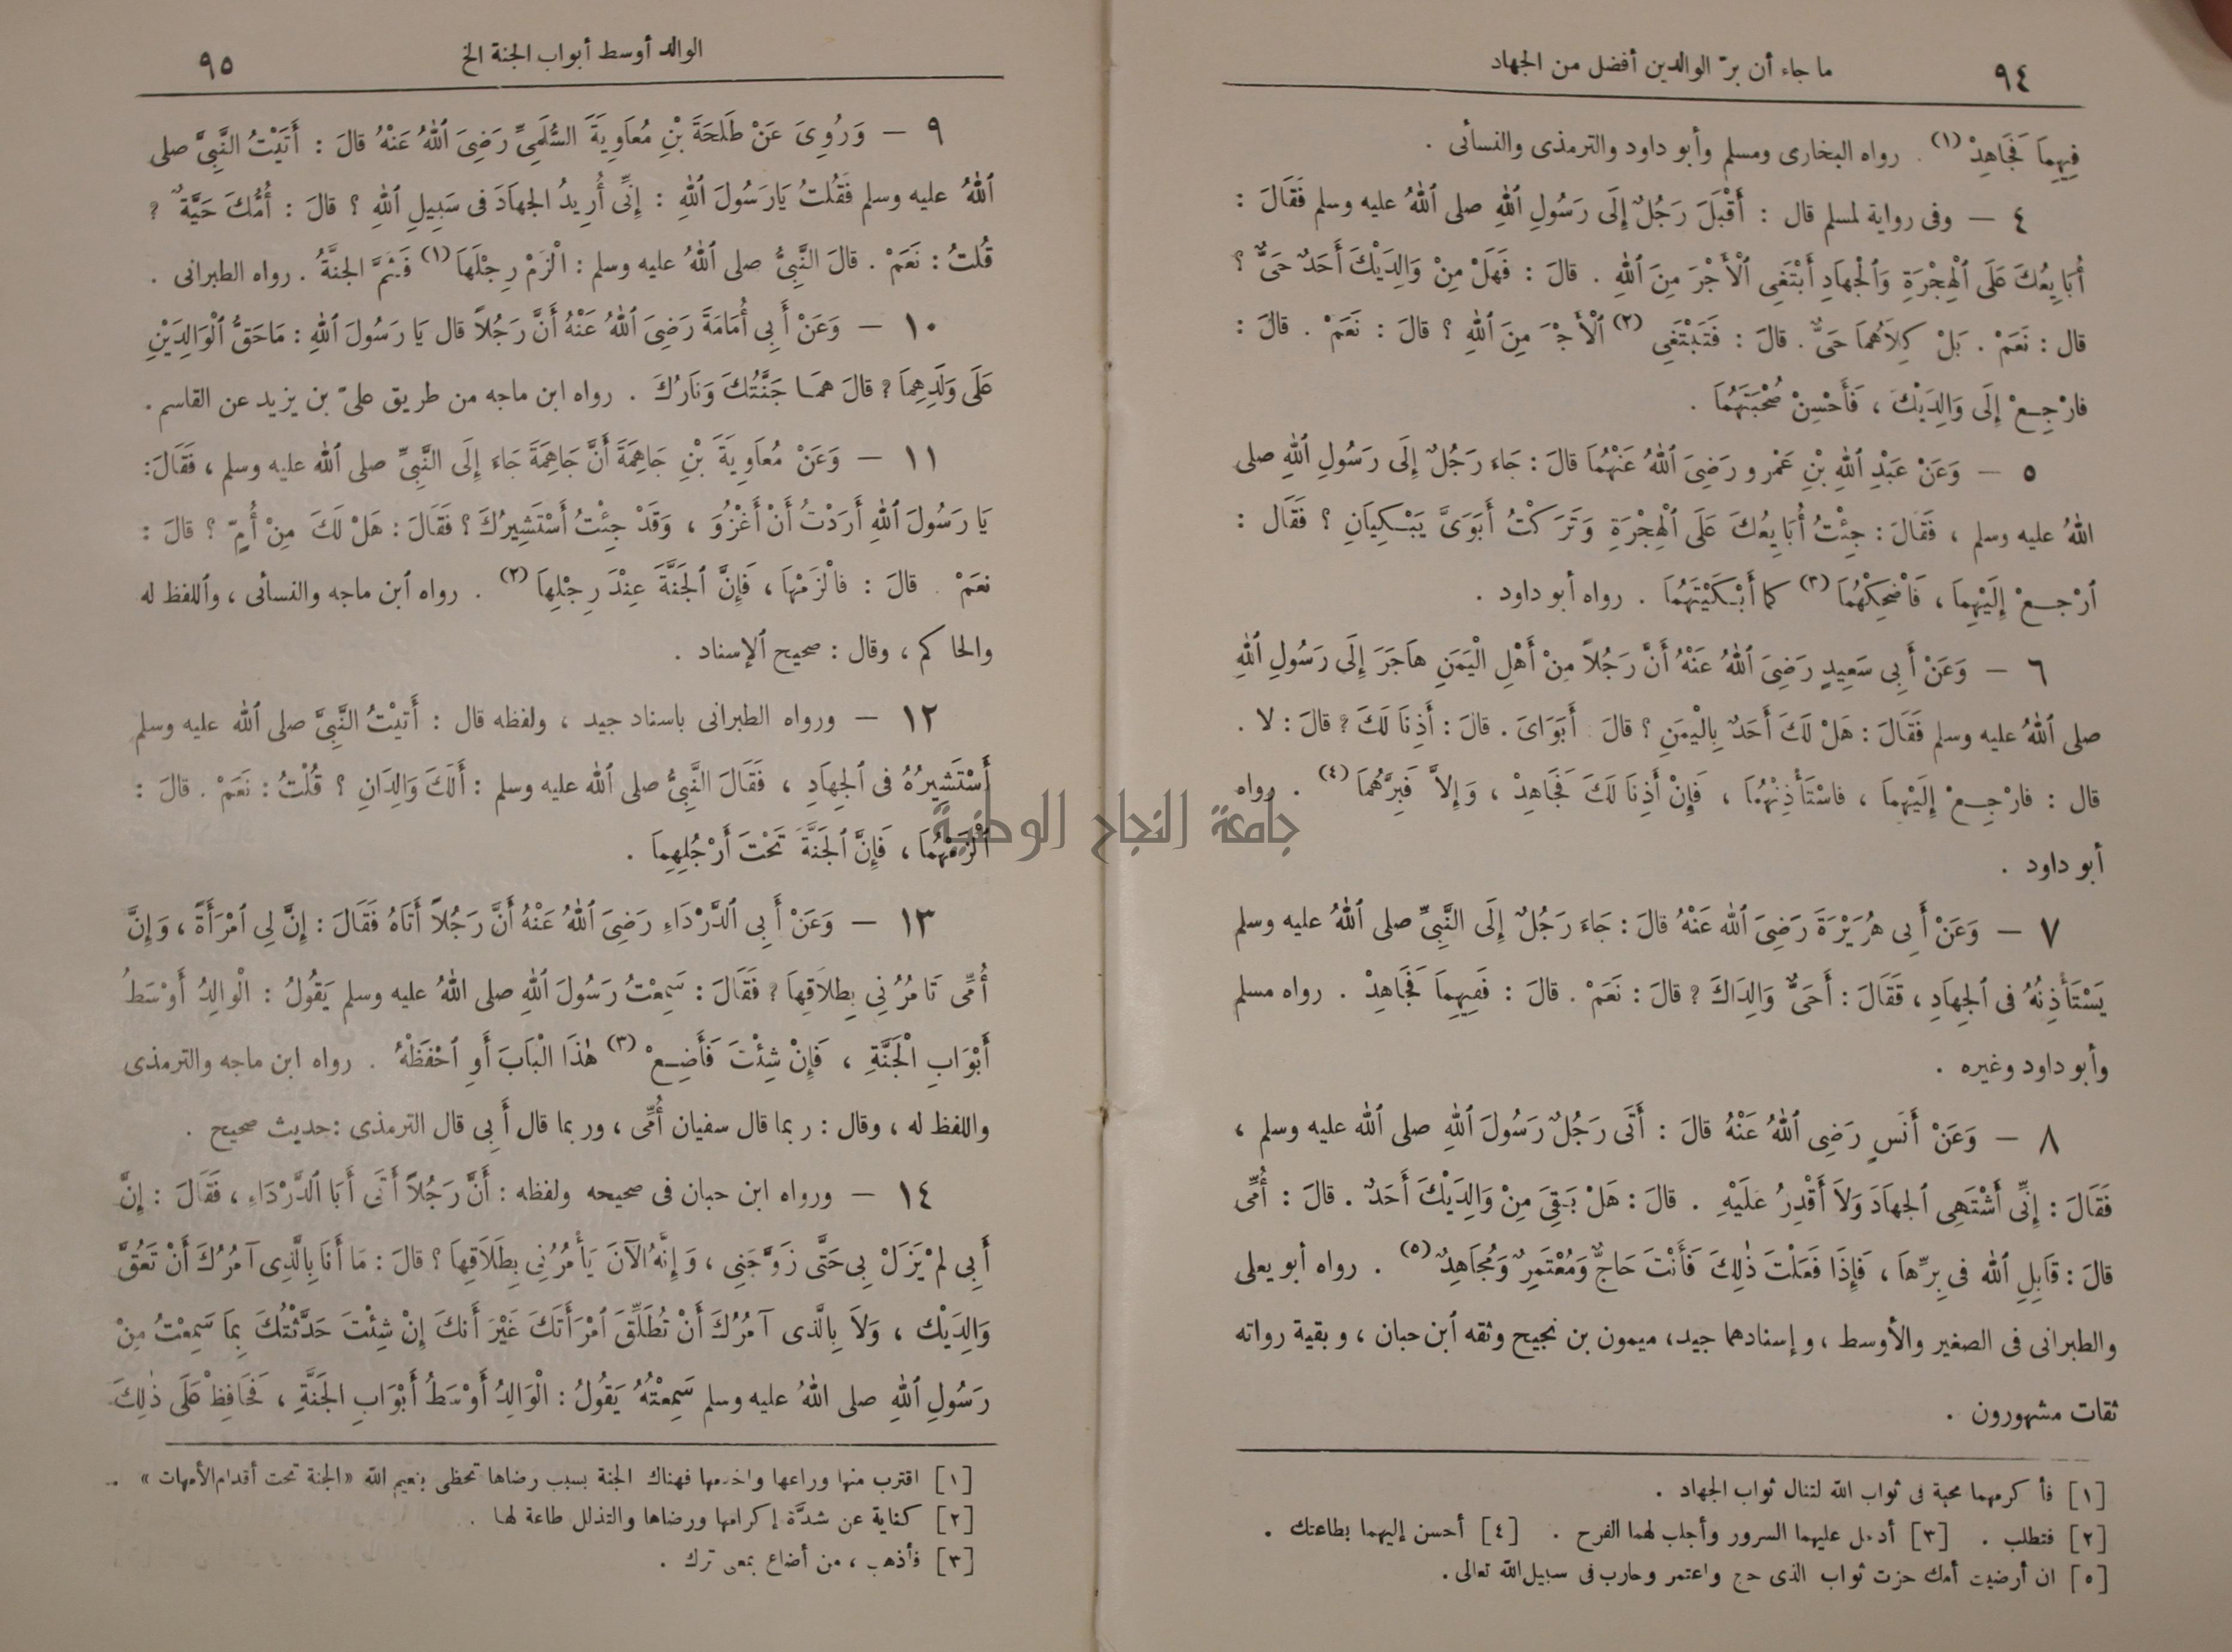 ما جاء أن برّ الوالدين أفضل من الجهاد ٩٤
فِيهِمَا فَجَاهِدْ (١) . رواه البخارى ومسلم وأبو داود والترمذى والنسائى .
٤ — وفى رواية لمسلم قال : أَقْبَلَ رَجُلٌ إِلَى رَسُولِ ٱللهِ صلى ٱللهُ عليه وسلم فَقَالَ :
أُبَايِعُكَ عَلَى ٱلْهِجْرَةِ وَٱلْجِهَادِ أَبْتَغِى ٱلْأَجْرَ مِنَ ٱللهِ . قالَ : فَهَلْ مِنْ وَالِدَيْكَ أَحَدٌ حَىٌّ ؟
قال : نَعَمْ . بَلْ كِلَاهُمَا حَىٌّ . قالَ : فَتَبْتَغِى (٢) ٱلْأَجْرَ مِنَ ٱللهِ ؟ قالَ : نَعَمْ . قالَ :
فارْجِعْ إِلَى وَالِدَيْكَ ، فَأَحْسِنْ صُحْبَتَهُمَا .
٥ — وَعَنْ عَبْدِ ٱللهِ بْنِ عَمْرٍو رَضِىَ ٱللهُ عَنْهُمَا قالَ : جَاءَ رَجُلٌ إِلَى رَسُولِ ٱللهِ صلى
اللهُ عليه وسلم ، فَقَالَ : جِئْتُ أُبَايِعُكَ عَلَى ٱلْهِجْرَةِ وَتَرَكْتُ أَبَوَىَّ يَبْكِيَانِ ؟ فَقَال :
ٱرْجِعْ إِلَيْهِمَا ، فَأَضْحِكْهُمَا (٣) كما أَبْكَيْتَهُمَا . رواه أبو داود .
٦ — وَعَنْ أَبِى سَعِيدٍ رَضِىَ ٱللهُ عَنْهُ أَنَّ رَجُلاً مِنْ أَهْلِ الْيَمَنِ هَاجَرَ إِلَى رَسُولِ ٱللهِ
صلى ٱللهُ عليه وسلم فَقَالَ : هَلْ لَكَ أَحَدٌ بِالْيَمَنِ ؟ قالَ : أَبَوَاىَ . قالَ : أَذِنَا لَكَ ؟ قالَ : لا .
قال : فارْجِعْ إِلَيْهِمَا ، فاسْتَأْذِنْهُمَا ، فَإِنْ أَذِنَا لَكَ فَجَاهِدْ ، وَإِلاَّ فَبِرَّهُمَا (٤) . رواه
أبو داود .
٧ — وَعَنْ أَبِى هُرَيْرَةَ رَضِىَ ٱلله عَنْهُ قالَ : جَاءَ رَجُلٌ إِلَى النَّبِىِّ صلى ٱللهُ عليه وسلم
يَسْتَأْذِنُهُ فى ٱلجِهَادِ ، فَقَالَ : أَحَىٌّ وَالِدَاكَ ؟ قالَ : نَعَمْ . قالَ : فَفِيهِمَا فَجَاهِدْ . رواه مسلم
وأبو داود وغيره .
٨ — وَعَنْ أَنَسٍ رَضِى ٱللهُ عَنْهُ قالَ : أَتَى رَجُلٌ رَسُولَ ٱللهِ صلى ٱلله عليه وسلم ،
فَقَالَ : إِنِّى أَشْتَهِى ٱلجهَادَ وَلاَ أَقْدِرُ عَلَيْهِ . قالَ : هَلْ بَقِىَ مِنْ وَالِدَيْكَ أَحَدٌ . قالَ : أُمِّى
قالَ : قَابِلِ ٱلله فى بِرِّهَا ، فَإِذَا فَعَلْتَ ذٰلِكَ فَأَنْتَ حَاجٌّ وَمُعْتَمِرٌ وَمُجَاهِدٌ (٥) . رواه أبو يعلى
والطبرانى فى الصغير والأوسط ، وإسنادهما جيد، ميمون بن نجيح وثقه ٱبن حبان ، وبقية رواته
ثقات مشهورون .
[١] فأكرمهما محبة فى ثواب الله لتنال ثواب الجهاد .
[٢] فتطلب . [٣] أدخل عليهما السرور وأجلب لهما الفرح . [٤] أحسن إليهما بطاعتك .
[٥] ان أرضيت أمك حزت ثواب الذى حج واعتمر وحارب فى سبيل الله تعالى .
الوالد أوسط أبواب الجنة الخ ٩٥
٩ — وَرُوِىَ عَنْ طَلحَةَ بْنِ مُعَاوِيَةَ السُّلَمِىِّ رَضِىَ ٱللهُ عَنْهُ قالَ : أَتَيْتُ النَّبِىَّ صلى
ٱللهُ عليه وسلم فَقُلتُ يَارَسُولَ ٱللهِ : إِنِّى أُرِيدُ الجهَادَ فى سَبِيلِ ٱللهِ ؟ قالَ : أُمُّكَ حَيَّةٌ ؟
قُلتُ : نَعَمْ . قالَ النَّبِىُّ صلى ٱللهُ عليه وسلم : الْزَمْ رِجْلَهَا (١) فَثَمَّ الجنَّةُ . رواه الطبرانى .
١٠ — وَعَنْ أَبِى أُمَامَةَ رَضِىَ ٱللهُ عَنْهُ أَنَّ رَجُلاً قال يَا رَسُولَ ٱللهِ : مَاحَقُّ ٱلْوَالِدَيْنِ
عَلَى وَلَدِهِمَا ؟ قالَ هُمَا جَنَّتُكَ وَنَارُكَ . رواه ابن ماجه من طريق علىّ بن يزيد عن القاسم .
١١ — وَعَنْ مُعَاوِيَةَ بْنِ جَاهِمَةَ أَنَّ جَاهِمَةَ جَاءَ إِلَى النَّبِىِّ صلى ٱلله عليه وسلم ، فَقَالَ:
يَا رَسُولَ ٱللهِ أَرَدْتُ أَنْ أَغْزُوَ ، وَقَدْ جِئْتُ أَسْتَشِيرُكَ ؟ فَقَالَ : هَلْ لَكَ مِنْ أُمٍّ ؟ قالَ :
نعَمْ . قالَ : فالْزَمْهَا ، فَإِنَّ ٱلجَنَّةَ عِنْدَ رِجْلِهَا (٢) . رواه ٱبن ماجه والنسائى ، وٱللفظ له
والحاكم ، وقال : صحيح ٱلإسناد .
١٢ — ورواه الطبرانى باسناد جيد ، ولفظه قال : أَتيْتُ النَّبِىَّ صلى ٱلله عليه وسلم
أَسْتَشِيرُهُ فى ٱلجِهَادِ ، فَقَالَ النَّبِىُّ صلى ٱلله عليه وسلم : أَلَكَ وَالِدَانِ ؟ قُلْتُ : نَعَمْ . قالَ :
ٱلْزَمْهُمَا ، فَإِنَّ ٱلجَنَّةَ تَحْتَ أَرْجُلِهِمَا .
جامعة النجاح الوطنية
١٣ — وَعَنْ أَبِى ٱلدَّرْدَاءِ رَضِىَ ٱللهُ عَنْهُ أَنَّ رَجُلاً أَتَاهُ فَقَالَ : إِنَّ لِى ٱمْرَأَةً ، وَإِنَّ
أُمِّى تَامُرُنِى بِطلاَقِهَا ؟ فَقَالَ : سَمِعْتُ رَسُولَ ٱللهِ صلى ٱللهُ عليه وسلم يَقُولُ : الْوالِدُ أَوْسَطُ
أَبْوَابِ ٱلْجَنَّةِ ، فَإِنْ شِئْتَ فَأَضِعْ (٣) هٰذَا الْبَابَ أَوِ ٱحْفَظْهُ . رواه ابن ماجه والترمذى
واللفظ له ، وقال : ربما قال سفيان أُمِّى ، وربما قال أَبِى قال الترمذى : حديث صحيح .
١٤ — ورواه ابن حبان فى صحيحه ولفظه : أَنَّ رَجُلاً أَتَى أَبَا ٱلدَّرْدَاءِ ، فَقَالَ : إِنَّ
أَبِى لمْ يَزَلْ بِى حَتَّى زَوَّجَنِى ، وَإِنَّهُ ٱلآنَ يَأْمُرُنِى بِطَلَاقِهَا ؟ قالَ : مَا أَنَا بِالَّذِى آمُرُكَ أَنْ تَعُقَّ
وَالِدَيْك ، وَلاَ بِالَّذى آمُرُكَ أَنْ تُطَلِّقَ ٱمْرَأَتَكَ غَيْرَ أَنكَ إِنْ شِئْتَ حَدَّثْتُكَ بِمَا سَمِعْتُ مِنْ
رَسُولِ ٱللهِ صلى اللهُ عليه وسلم سَمِعْتُهُ يَقُولُ : الْوَالِدُ أَوْسَطُ أَبْوَابِ الجَنَّةِ ، فَحَافِظْ عَلَى ذٰلِكَ
[١] اقترب منها وراعها واخدمها فهناك الجنة بسبب رضاها تحظى بنعيم الله «الجنة تحت أقدام الأمهات» .
[٢] كناية عن شدَّة إكرامها ورضاها والتذلل طاعة لها .
[٣] فأذهب ، من أضاع بمعى ترك .